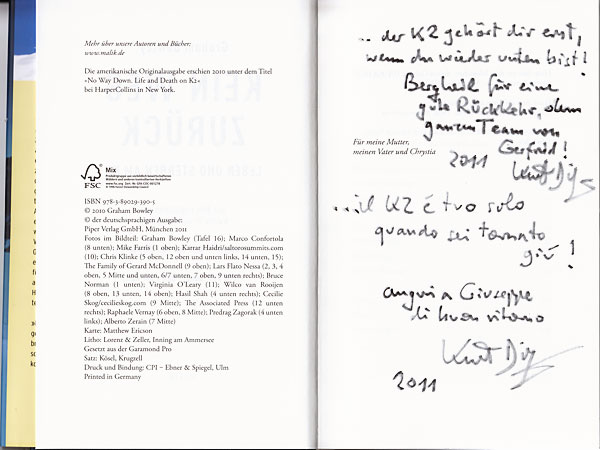 Mehr über unsere Autoren und Bücher:
www.malik.de
Die amerikanische Originalausgabe erschien 2010 unter dem Titel
»No Way Down. Life and Death on K2«
bei HarperCollins in New York.
FSC
Mix
ISBN 978-3-89029-390-5
© 2010 Graham Bowley
© der deutschsprachigen Ausgabe:
Piper Verlag GmbH, München 2011
Fotos im Bildteil: Graham Bowley (Tafel 16); Marco Confortola
(8 unten); Mike Farris (1 oben); Karrar Haidri/saltorosummits.com
(10); Chris Klinke (5 oben, 12 oben und unten links, 14 unten, 15);
The Family of Gerard McDonnell (9 oben); Lars Flato Nessa (2, 3, 4
oben, 5 Mitte und unten, 6/7 unten, 7 oben, 9 unten rechts); Bruce
Norman (1 unten); Virginia O'Leary (11); Wilco van Rooijen
(8 oben, 13 unten, 14 oben); Hasil Shah (4 unten rechts); Cecilie
Skog/cecilieskog.com (9 Mitte); The Associated Press (12 unten
rechts); Raphaele Vernay (6 oben, 8 Mitte); Predrag Zagorak (4 unten
links); Alberto Zerain (7 Mitte)
Karte: Matthew Ericson
Litho: Lorenz & Zeller, Inning am Ammersee
Gesetzt aus der Garamond Pro
Satz: Kösel, Krugzell
Druck und Bindung: CPI – Ebner & Spiegel, Ulm
Printed in Germany
... der K2 gehört dir erst,
wenn du wieder unten bist!
Bergheil für eine
gute Rückkehr, dem
ganzen Team von
Gerfried!
Für meine Mutter,
meinen Vater und Chrystia
2011 Kurt
...il K2 è tuo solo
quando sei tornato
giù!
auguri a Giuseppe
di buon ritorno
Kurt
2011